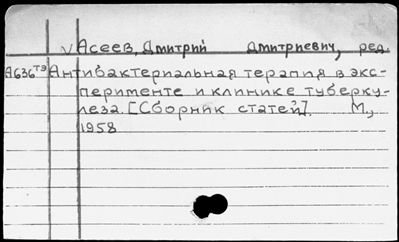 √ Асеев, Дмитрий Дмитриевич, ред.
А636тэ Антибактериальная терапия в экс-
перименте и клинике туберку-
леза. [Сборник статей]. М.,
1958